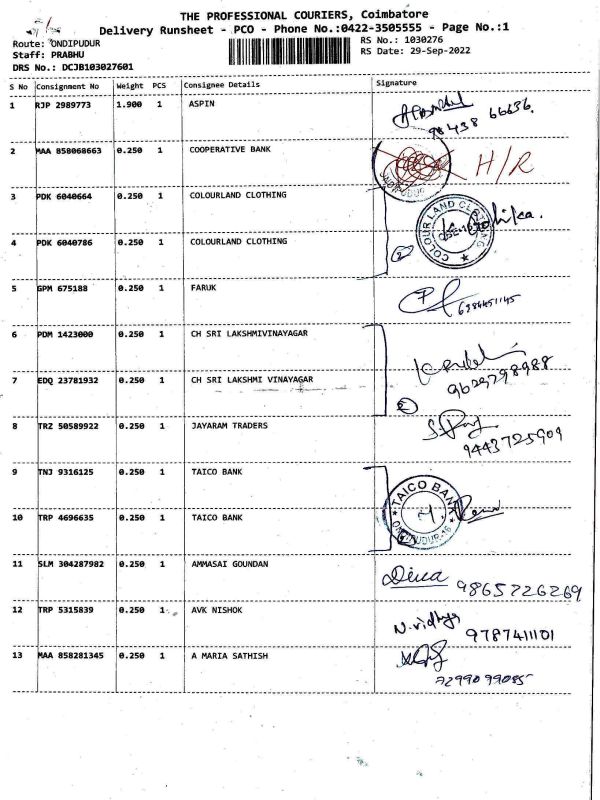 THE PROFESSIONAL COURIERS, Coimbatore
Delivery Runsheet - PCO - Phone No.:0422-3505555 - Page No.:1
Route: ONDIPUDUR
RS No.: 1030276
Staff: PRABHU
RS Date: 29-Sep-2022
DRS No.: DCJB103027601
S No Consignment No Weight PCS Consignee Details Signature
1 RJP 2989773 1.900 1 ASPIN
98438 66636.
2 MAA 858068663 0.250 1 COOPERATIVE BANK
H/R
3 PDK 6040664 0.250 1 COLOURLAND CLOTHING
COLOUR LAND CLOTHING
4 PDK 6040786 0.250 1 COLOURLAND CLOTHING
2
5 GPM 675188 0.250 1 FARUK
6384451145
6 PDM 1423000 0.250 1 CH SRI LAKSHMIVINAYAGAR
7 EDQ 23781932 0.250 1 CH SRI LAKSHMI VINAYAGAR
9629798988
2
8 TRZ 50589922 0.250 1 JAYARAM TRADERS
9443725909
9 TNJ 9316125 0.250 1 TAICO BANK
TAICO BANK
10 TRP 4696635 0.250 1 TAICO BANK
ONDIPUDUR-16
11 SLM 304287982 0.250 1 AMMASAI GOUNDAN
9865726269
12 TRP 5315839 0.250 1 AVK NISHOK
N. vidhya
9787411101
13 MAA 858281345 0.250 1 A MARIA SATHISH
7299099085